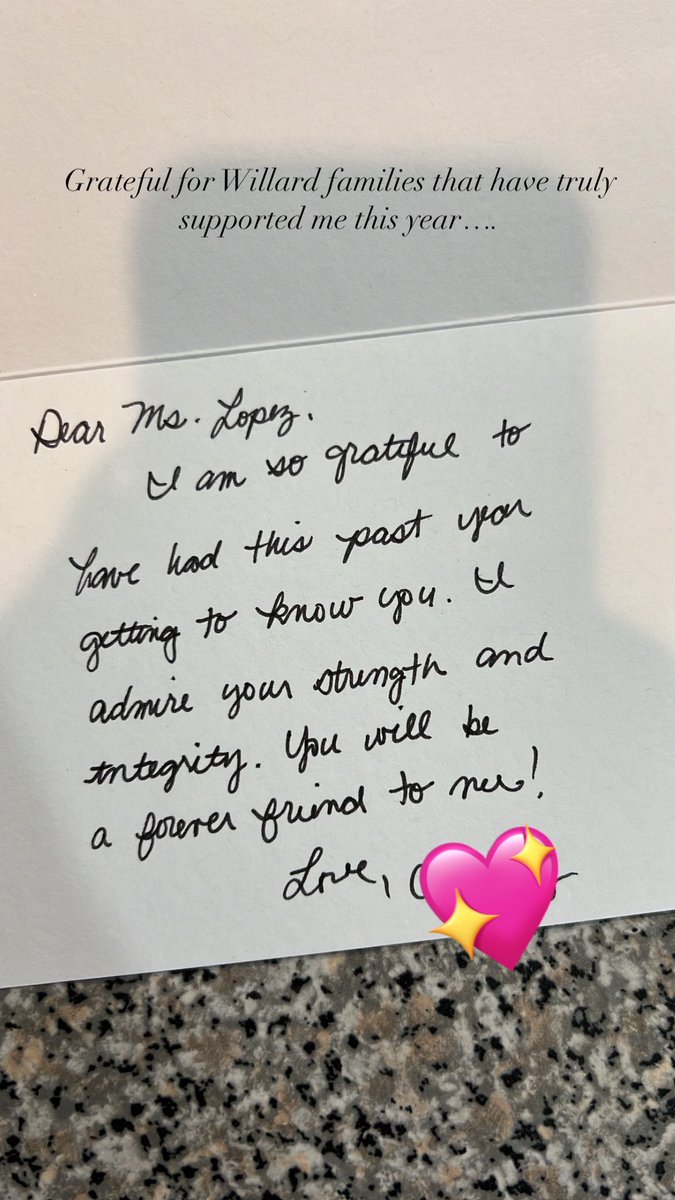 Grateful for Willard families that have truly
supported me this year....
Dear Ms. Lopez.
I am so grateful to
have had this past year
getting to know you. I
admire your strength and
integrity. You will be
a forever friend to me!
Love,